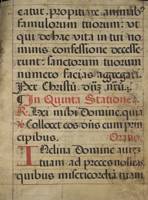 ceatur. propitiare animab⁹
famulorum tuorum: vt
qui de hac vita in tui no⸗
minis confessione decesse
runt: sanctorum tuorum
numero facias aggregari.
Per Christū. dn̄m. nr̄m.
In Quinta Statione
℟. Hei mihi Domine. quia
Collocet eos dn̄s cum prin
cipibus. Oratio.
INclina Domine aurē
tuam ad preces nostras
quibus misericordiā tuam